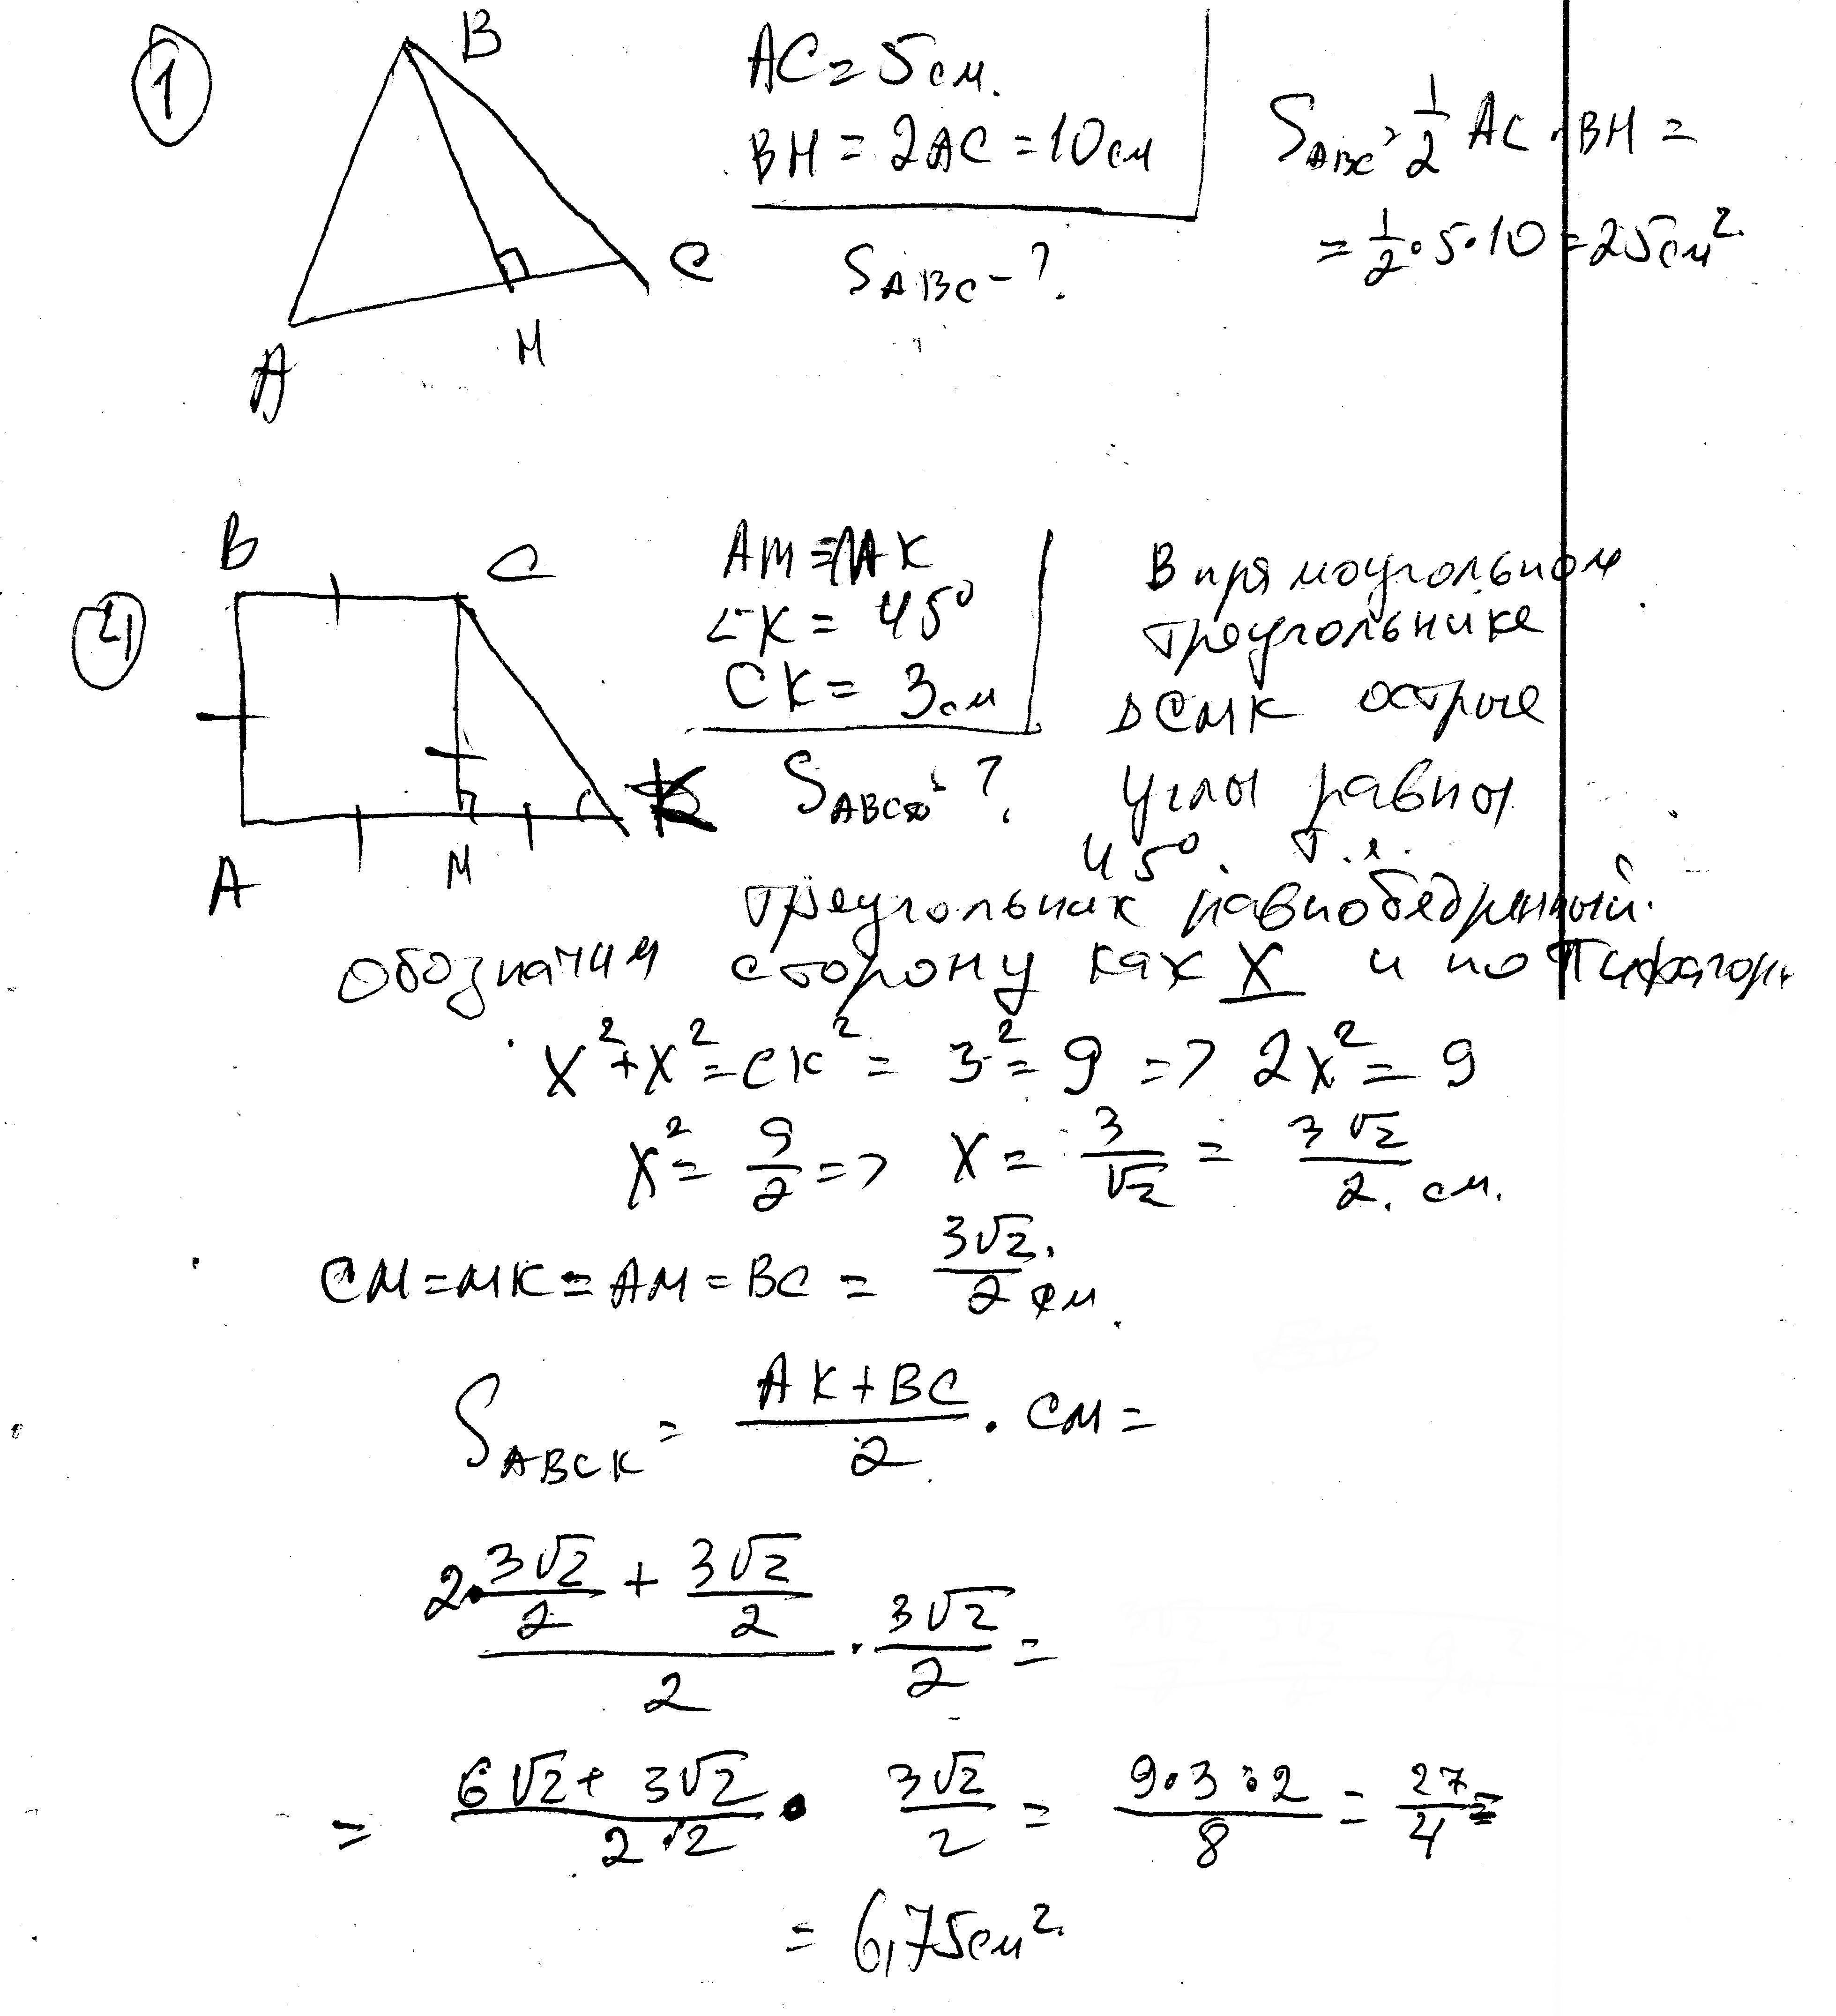 1
B
A
H
C
AC = 5 см.
BH = 2AC = 10 см
S ABC - ?
S ABC = 1/2 AC · BH =
= 1/2 · 5 · 10 = 25 см²
B
C
A
M
K
AM = MK
∠K = 45°
CK = 3 см
?
В прямоугольном
треугольнике
Δ CMK острые
углы равны
45°. т.е.
треугольник равнобедренный.
обозначим сторону как X и по Пифагору
X² + X² = CK² = 3² = 9 => 2X² = 9
X² = 9/2 => X = 3/√2 = 3√2/2 см.
CM = MK = AM = BC = 3√2/2 см.
S ABCK = (AK + BC)/2 · CM =
(2 · 3√2/2 + 3√2/2)/2 · 3√2/2 =
= (6√2 + 3√2)/(2·2) · 3√2/2 = 9·3·2/8 = 27/4 =
= 6,75 см²